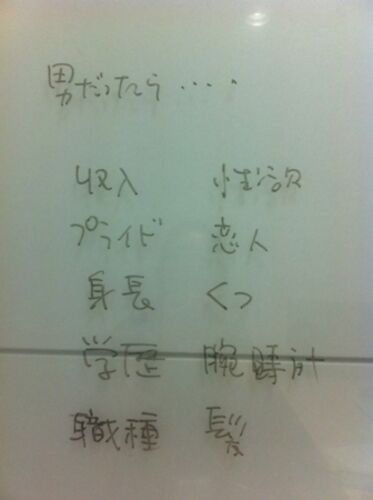 男だったら・・・・
収入 性欲
プライド 恋人
身長 くつ
学歴 腕時計
職種 髪